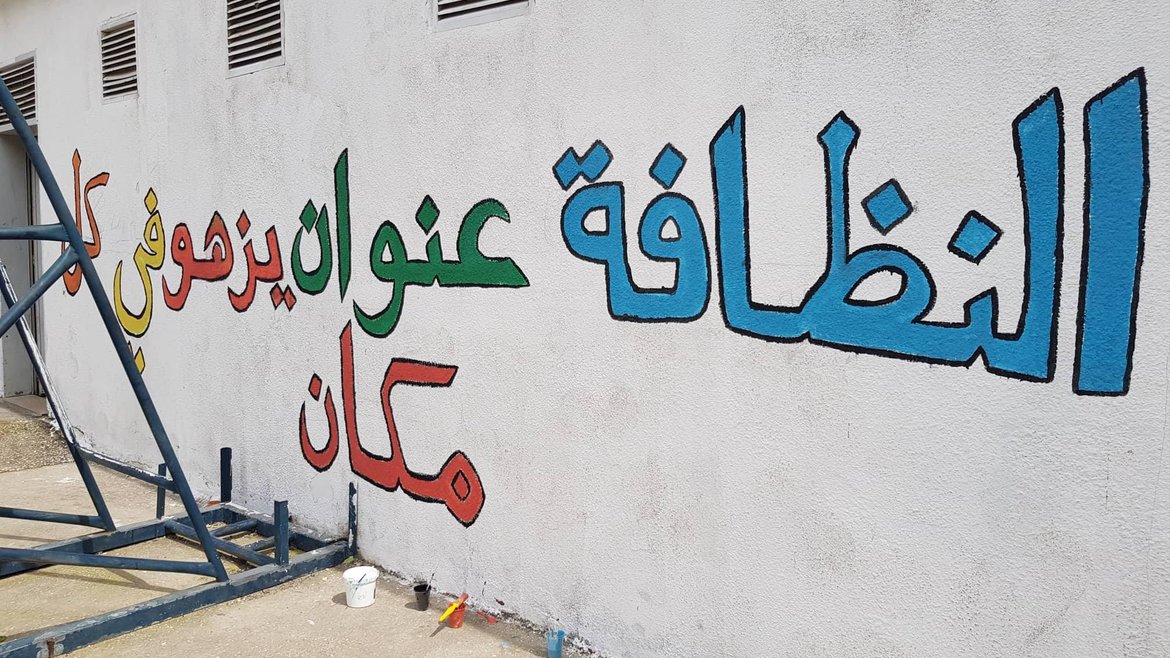 النظافة عنوان يزهو في كل
مكان